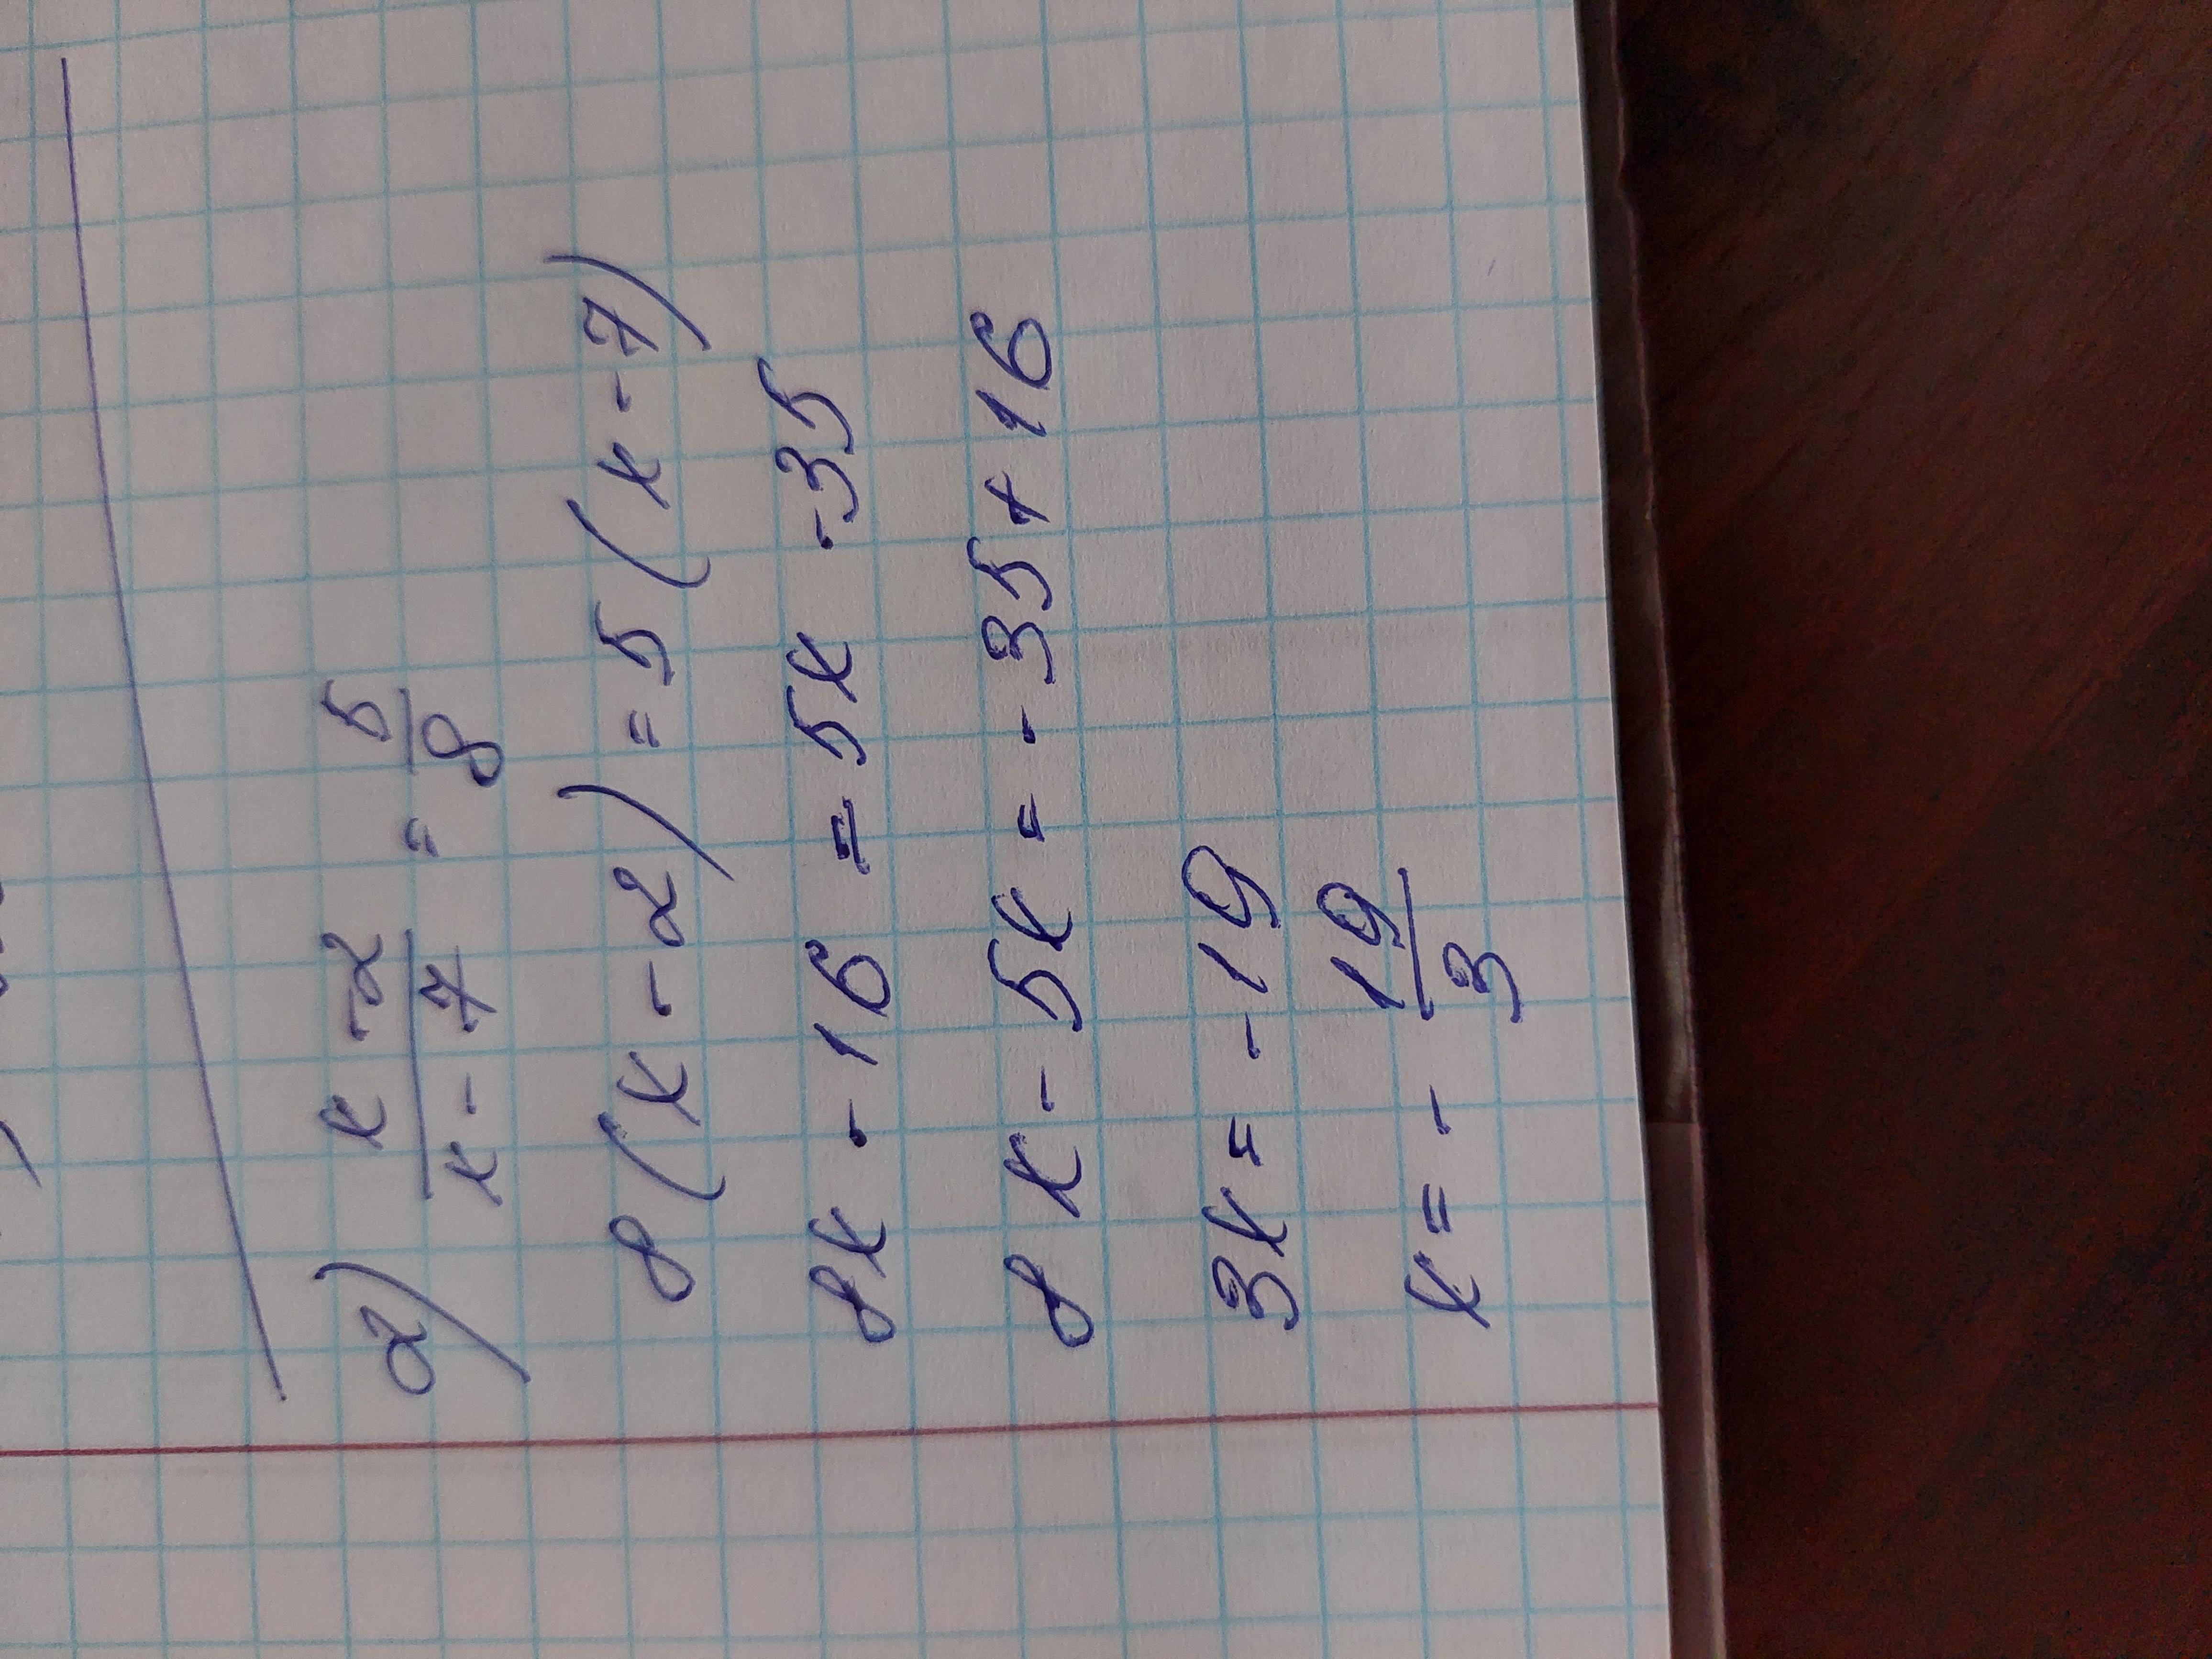 2) x-2/x-7 = 5/8
8(x-2)=5(x-7)
8x-16=5x-35
8x-5x=-35+16
3x=-19
x=-19/3